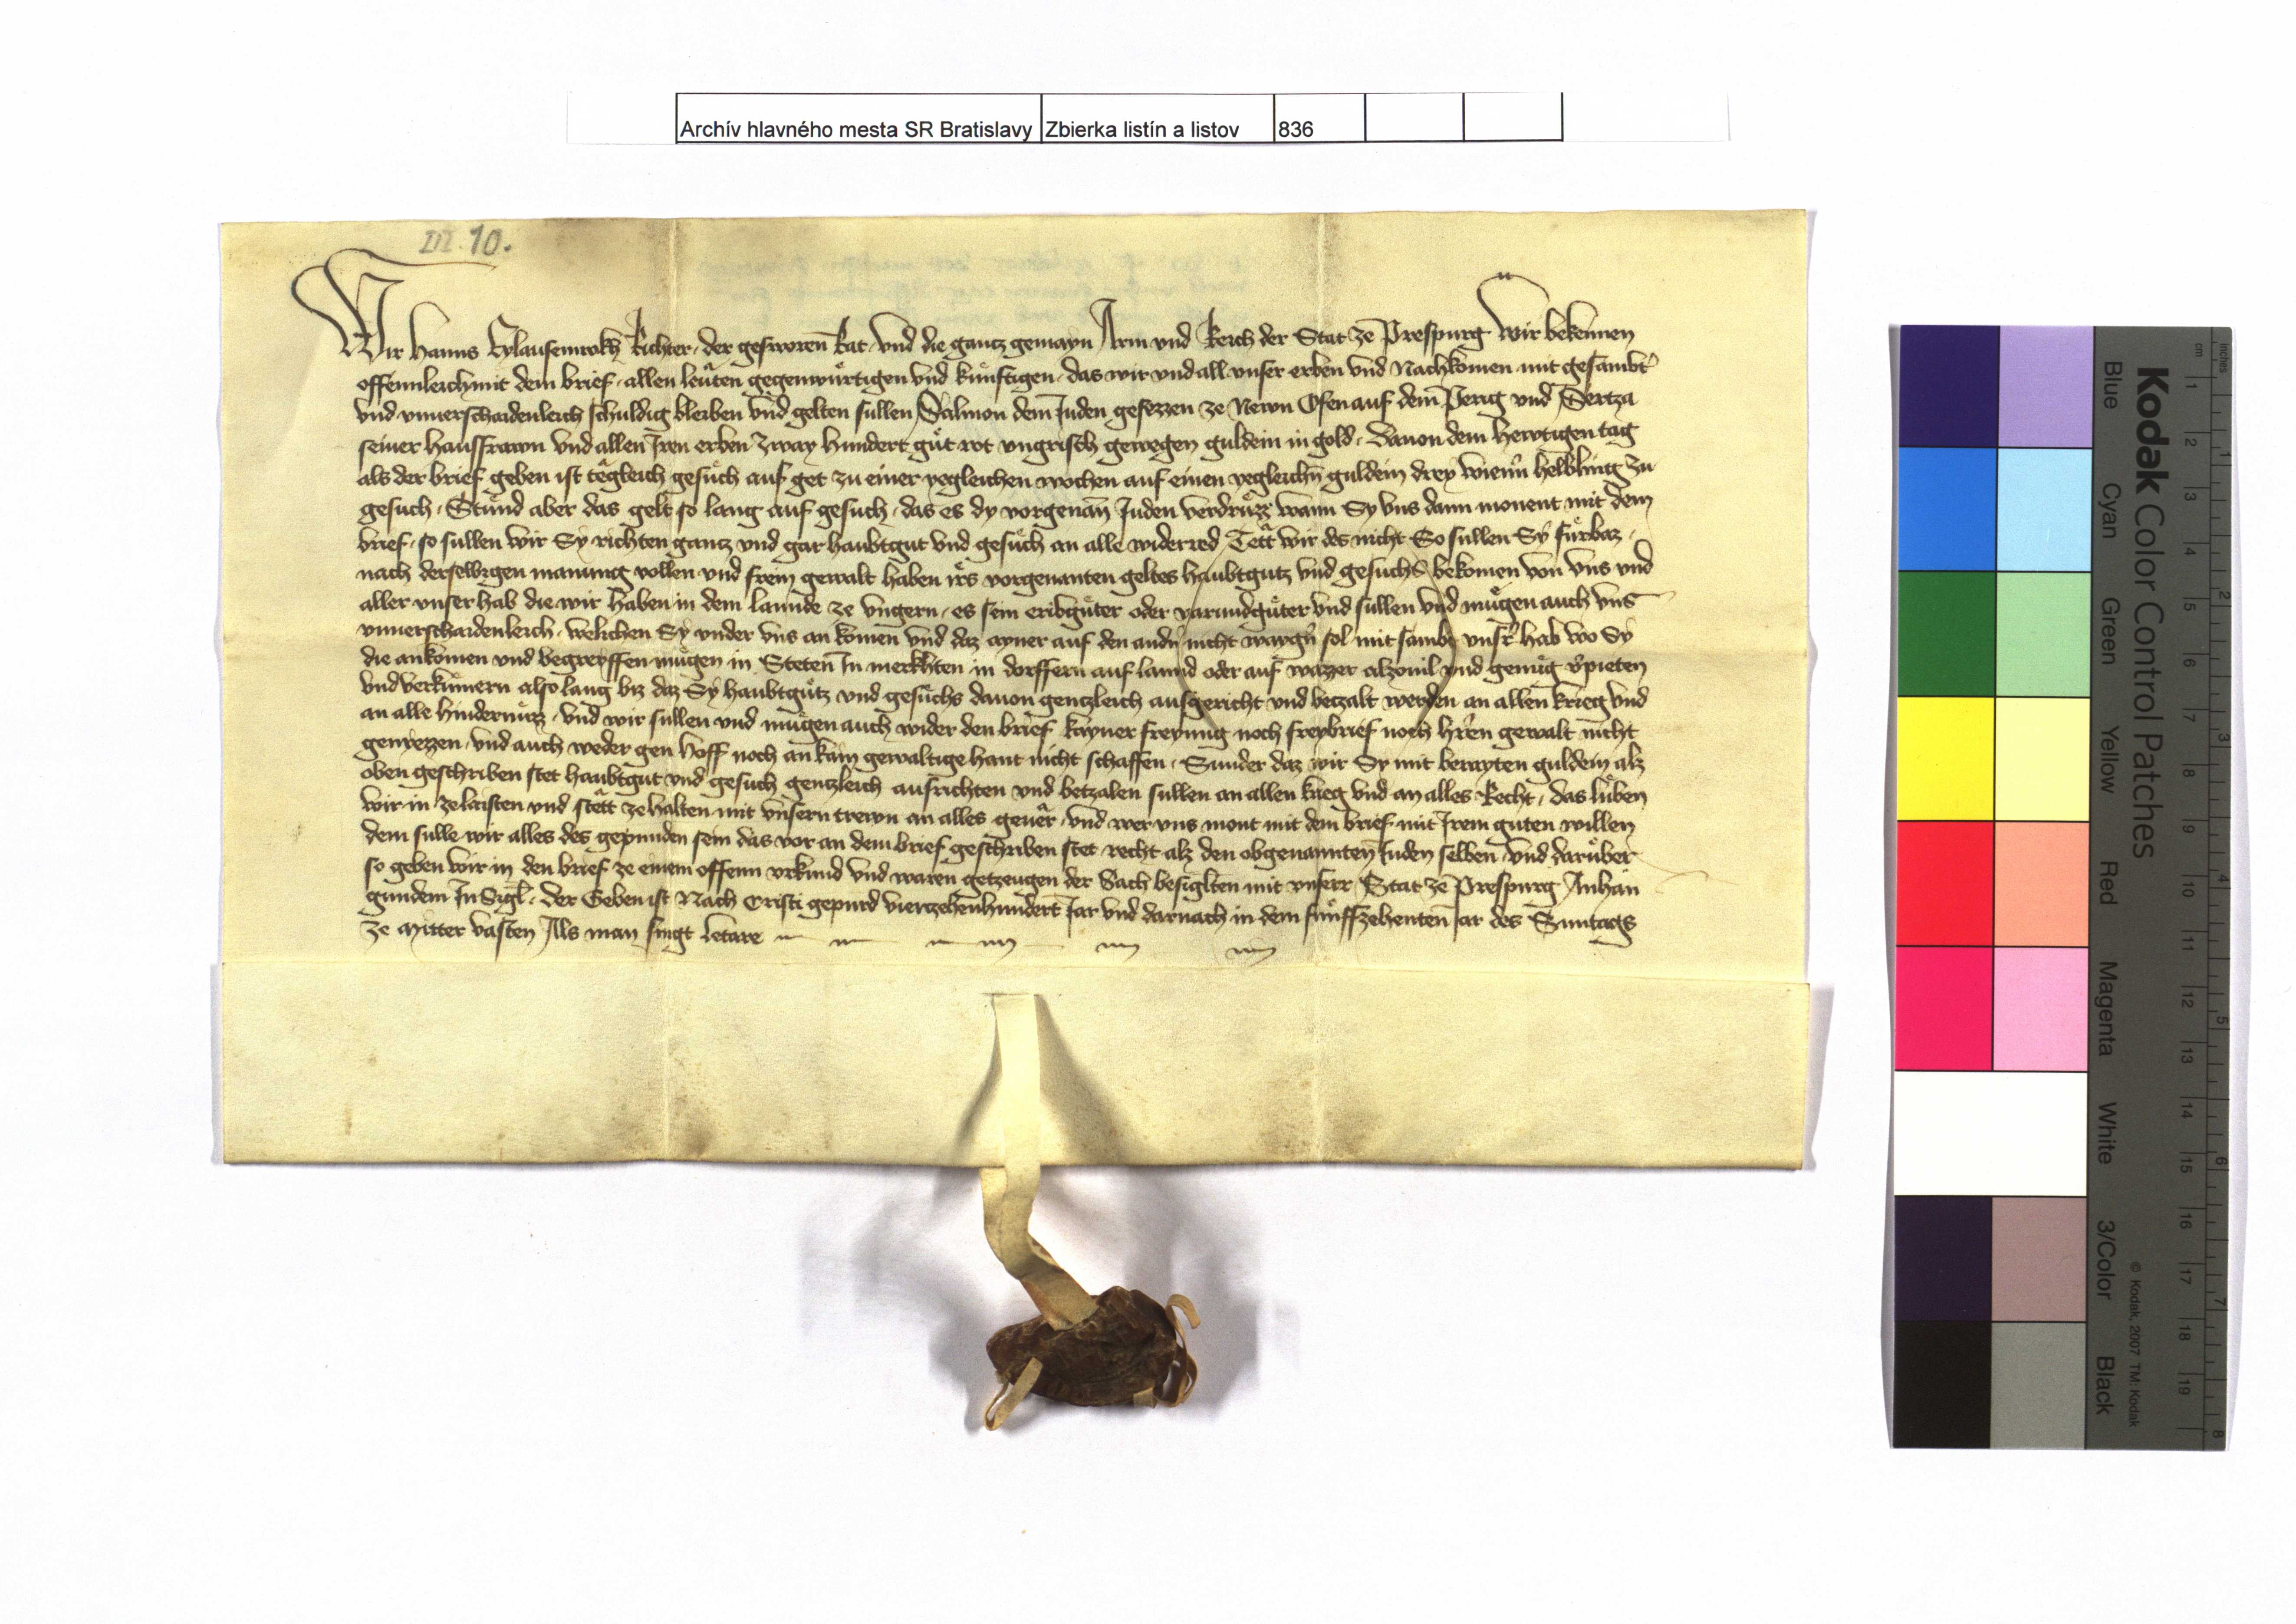 Archív hlavného mesta SR Bratislavy Zbierka listín a listov 836
III. 10.
Wir Hanns Eylausenrokh Richter, der gesworen Rat, vnd die gancz gemayn Arm vnd Reich der Stat ze Prespurg Wir bekennen
offennleich mit dem brief, allen leuten gegenwürtigen vnd künftigen, das wir vnd all vnser erben vnd Nachkomen mit gesambter
vnd vnuerschaidenleich schuldig bleiben vnd gelten sullen Salmon dem Juden gesezzen ze Newn Ofen auf dem Perig vnd
seiner hausfrawn vnd allen Iren erben Zway hundert güt rot vngrisch gewegen guldein in gold, Dauon dem hewtigen tag
als der brief geben ist tëgleich gesüch auf get zu einer yegleichen wochen auf einen yegleichn guldein drey wienner helbling zu
gesuch, Stünd aber das gelt so lang auf gesuch, das es dy vorgenan Juden verdruzz wann Sy vns dann monent mit dem
brief, so sullen wir Sy richten gancz vnd gar haubtgut vnd gesüch an alle widerred Tett wir des nicht So sullen Sy fürbaz,
nach derselbigen manung vollen vnd frein gewalt haben irs vorgenanten geltes haubtgutz vnd gesuchs bekomen von vns vnd
aller vnser hab die wir haben in dem lannde ze vngern, es sein eribgüter oder varundgüter vnd sullen vnd mügen auch vns
vnuerschaidenleich, welichen Sy vnder vns an komen vnd daz ayner auf den andern nicht waygern sol mit sambt vnser hab wo Sy
die ankomen vnd begreyffen mügen in Steten In merkhten in dorffern auf lannd oder auf wazzer alzouil vnd genüg verpieten
vnd verkümern also lang biz daz Sy haubtgütz vnd gesüchs dauon genczleich ausgericht vnd betzalt werden an allen krieg vnd
an alle hindernüzz, vnd wir sullen vnd mügen auch wider den brief kayner freyung noch freybrief noch herren gewalt nicht
genyezzen, vnd auch weder gen hoff noch an kain gewaltige hant nicht schaffen, Sunder daz wir Sy mit berayten guldein alz
oben geschriben stet haubtgut vnd gesuch genczleich ausrichten vnd betzalen sullen an allen krieg vnd an alles Recht, das luben
wir in ze laisten vnd stët ze halten mit vnsern trewn an alles geuër, vnd wer vns mont mit dem brief mit Irem guten willen
dem sulle wir alles des gepunden sein das vor an dem brief geschriben stet recht alz den obgenannten Juden selben vnd darüber
so geben wir in den brief ze einem offenn vrkund vnd waren getzeugen der Sach besiglten mit vnserr Stat ze Prespurg Anhan
gundem InSigl, der Geben ist Nach Cristi gepurd vierzehenhundert Jar vnd darnach in dem fünffzehenten Jar des Suntags
ze mitter vasten Als man singt Letare
Kodak Color Control Patches
Blue Cyan Green Yellow Red Magenta White 3/Color Black
© Kodak, 2007 TM: Kodak
inches 1 2 3 4 5 6 7 8
cm 1 2 3 4 5 6 7 8 9 10 11 12 13 14 15 16 17 18 19